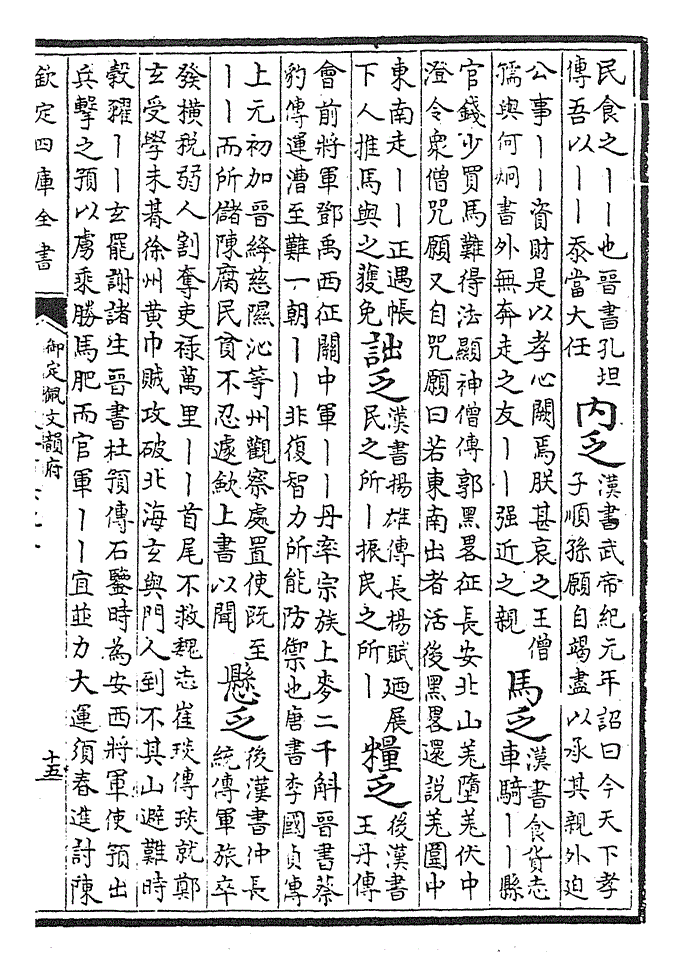 民食之丨丨也晉書孔坦
傳吾以丨丨忝當大任
内乏
漢書武帝紀元年詔曰今天下孝
子順孫願自竭盡以承其親外迫
公事丨丨資財是以孝心闕焉朕甚哀之王僧
孺與何炯書外無奔走之友丨丨强近之親
馬乏
漢書食貨志
車騎丨丨縣
官錢少買馬難得法顯神僧傳郭黑畧征長安北山羗墮羗伏中
澄令衆僧咒願又自咒願曰若東南出者活後黑畧還說羗圍中
東南走丨丨正遇帳
下人推馬與之獲免
詘乏
漢書揚雄傳長楊賦廼展
民之所丨振民之所丨
糧乏
後漢書
王丹傳
會前將軍鄧禹西征關中軍丨丨丹率宗族上麥二千斛晉書蔡
豹傳運漕至難一朝丨丨非復智力所能防禦也唐書李國貞傳
上元初加晉絳慈隰沁等州觀察處置使既至
丨丨而所儲陳腐民貧不忍遽歛上書以聞
懸乏
後漢書仲長
統傳軍旅卒
發橫税弱人割奪吏禄萬里丨丨首尾不救魏志崔琰傳琰就鄭
玄受學未朞徐州黄巾賊攻破北海玄與門人到不其山避難時
穀糴丨丨玄罷謝諸生晉書杜預傳石鑒時為安西將軍使預出
兵擊之預以虜乘勝馬肥而官軍丨丨宜並力大運須春進討陳
欽定四庫全書
御定佩文韻府
十五